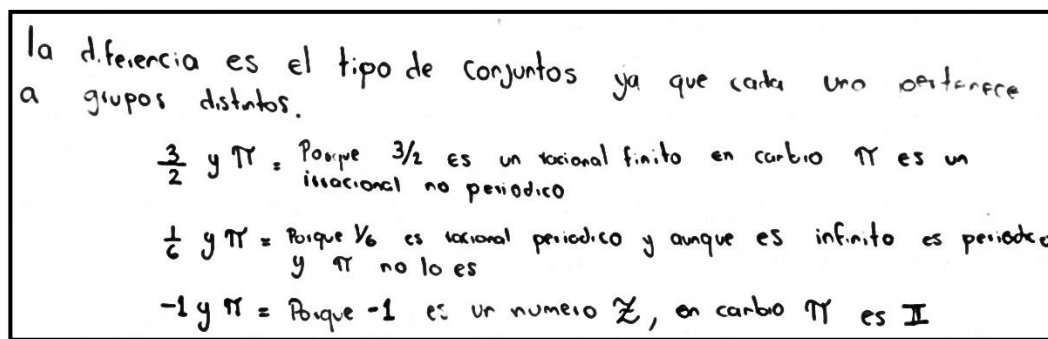 la diferencia es el tipo de conjuntos ya que cada uno pertenece
a grupos distintos.
3/2 y π = Porque 3/2 es un racional finito en cambio π es un
irracional no periodico
1/6 y π = Porque 1/6 es racional periodico y aunque es infinito es periodico
y π no lo es
-1 y π = Porque -1 es un numero ℤ, en cambio π es 𝕀